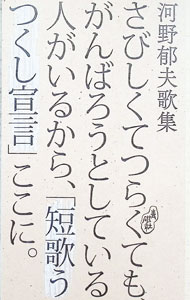 河野郁夫歌集
さびしくてつらくても
がんばろうとしている
人がいるから、「短歌う
つくし宣言」ここに。